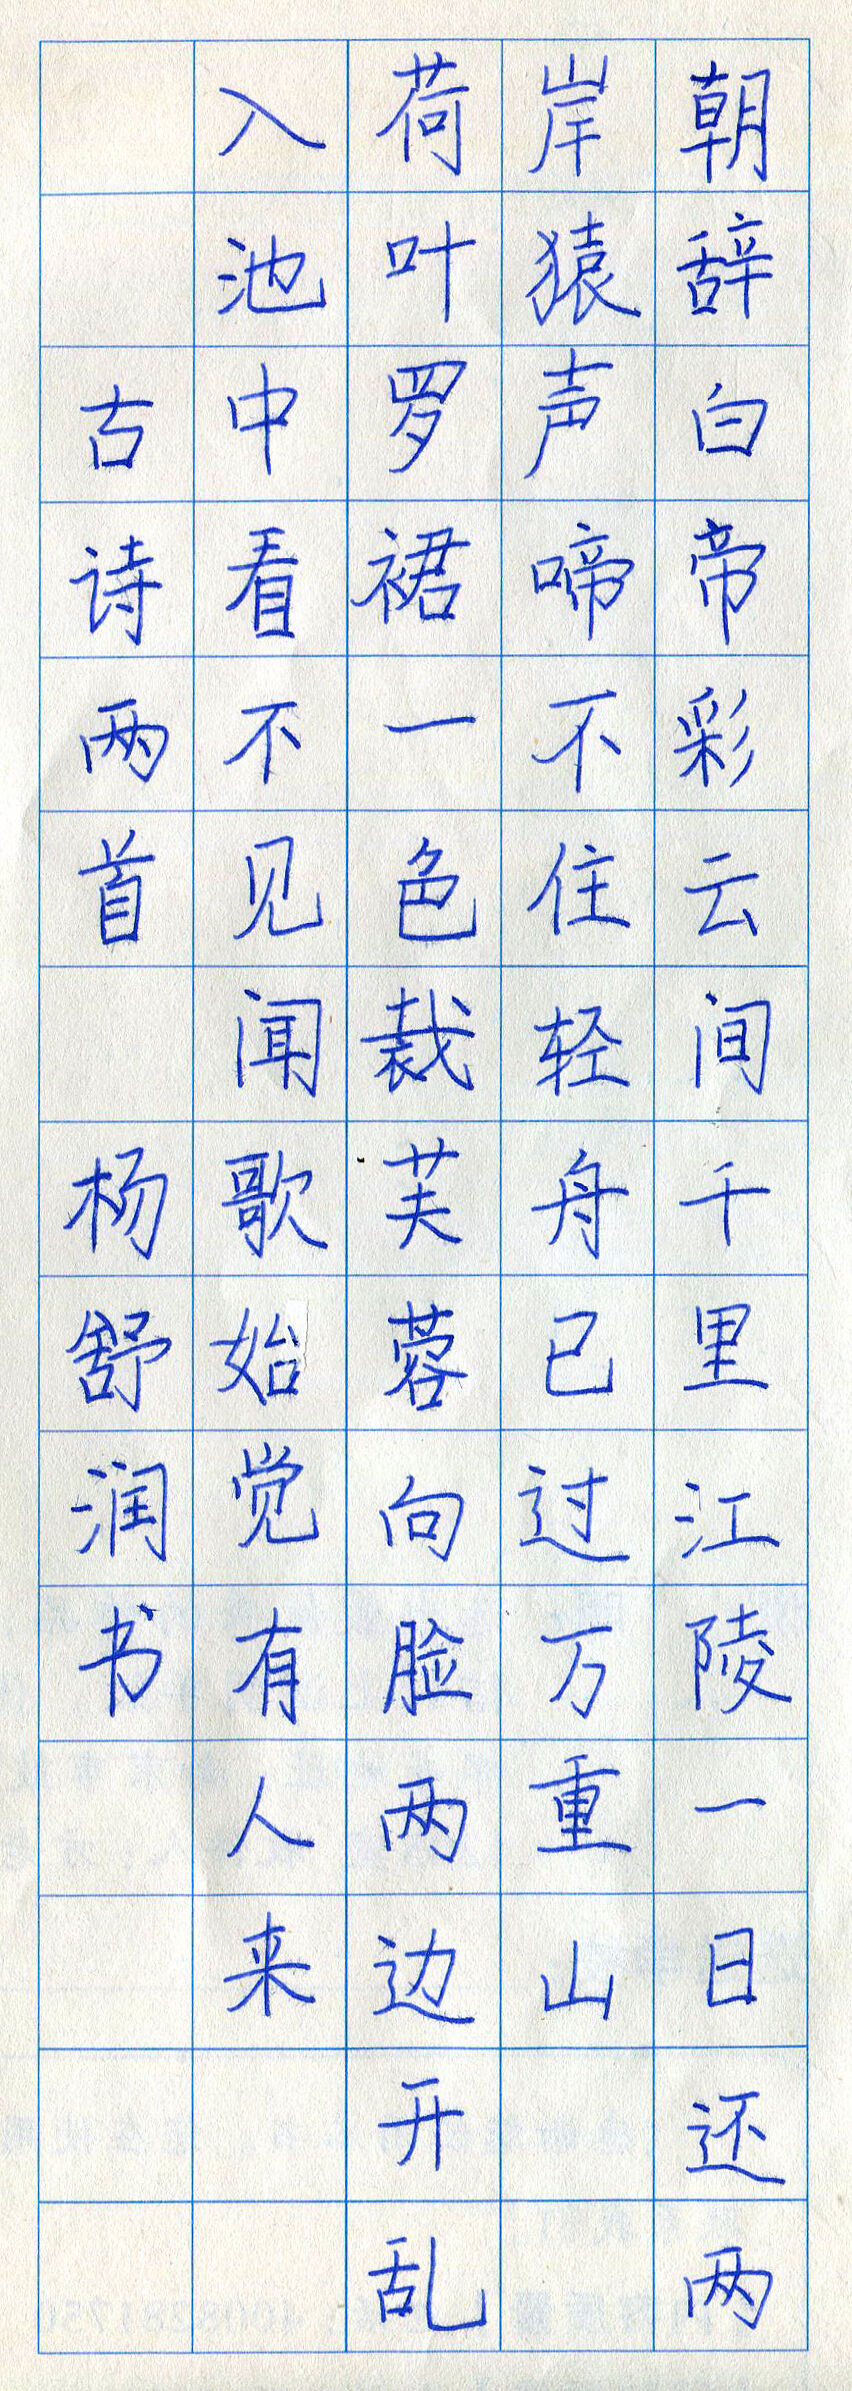 朝辞白帝彩云间千里江陵一日还两
岸猿声啼不住轻舟已过万重山
荷叶罗裙一色裁芙蓉向脸两边开乱
入池中看不见闻歌始觉有人来
古诗两首 杨舒润书